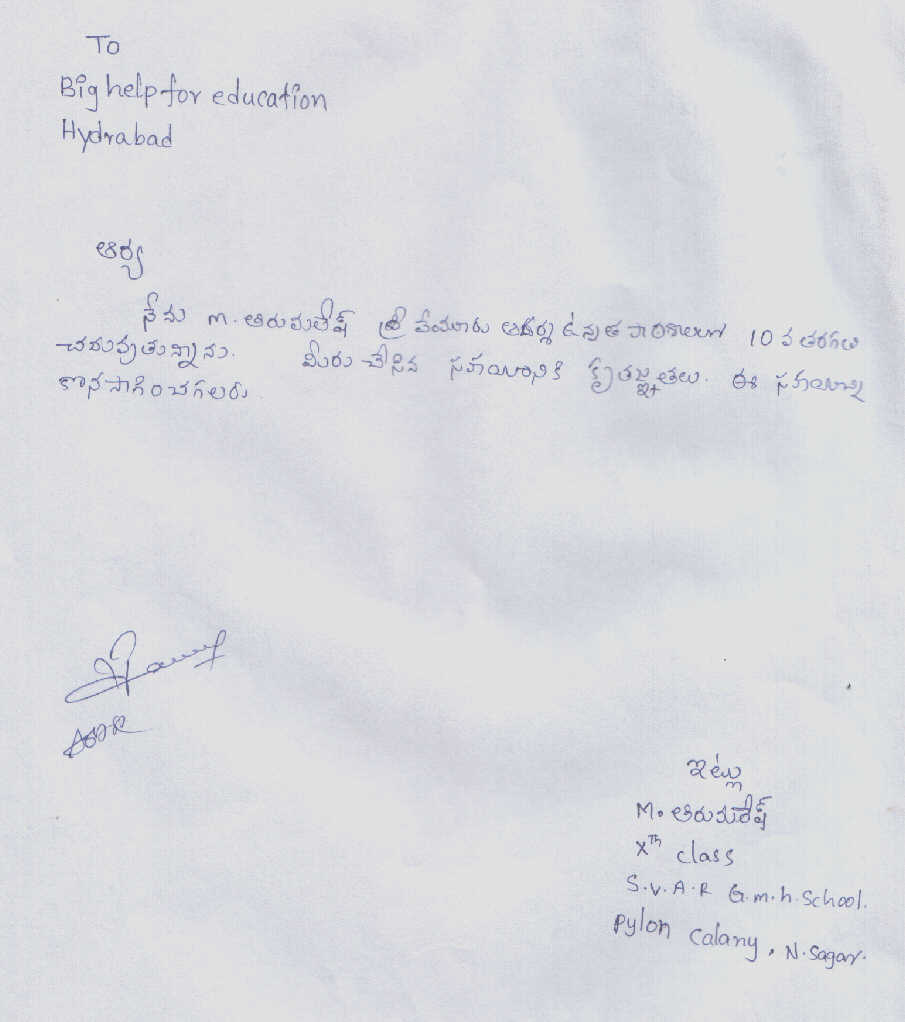 To
Big help for education
Hydrabad
ఆర్య
నేను m. తిరుమలేష్ శ్రీ వేంయూరు ఆదర్శ ఉన్నత పాఠశాలలో 10 వ తరగతి
చదువుతున్నాను. మీరు చేసిన సహయానికి కృతజ్ఞతలు. ఈ సహయాన్ని
కొనసాగించగలరు.
ఇట్లు
M. తిరుమలేష్
Xth class
S.V.A.R G.m.h.School.
Pylon Calany, N.Sagar.